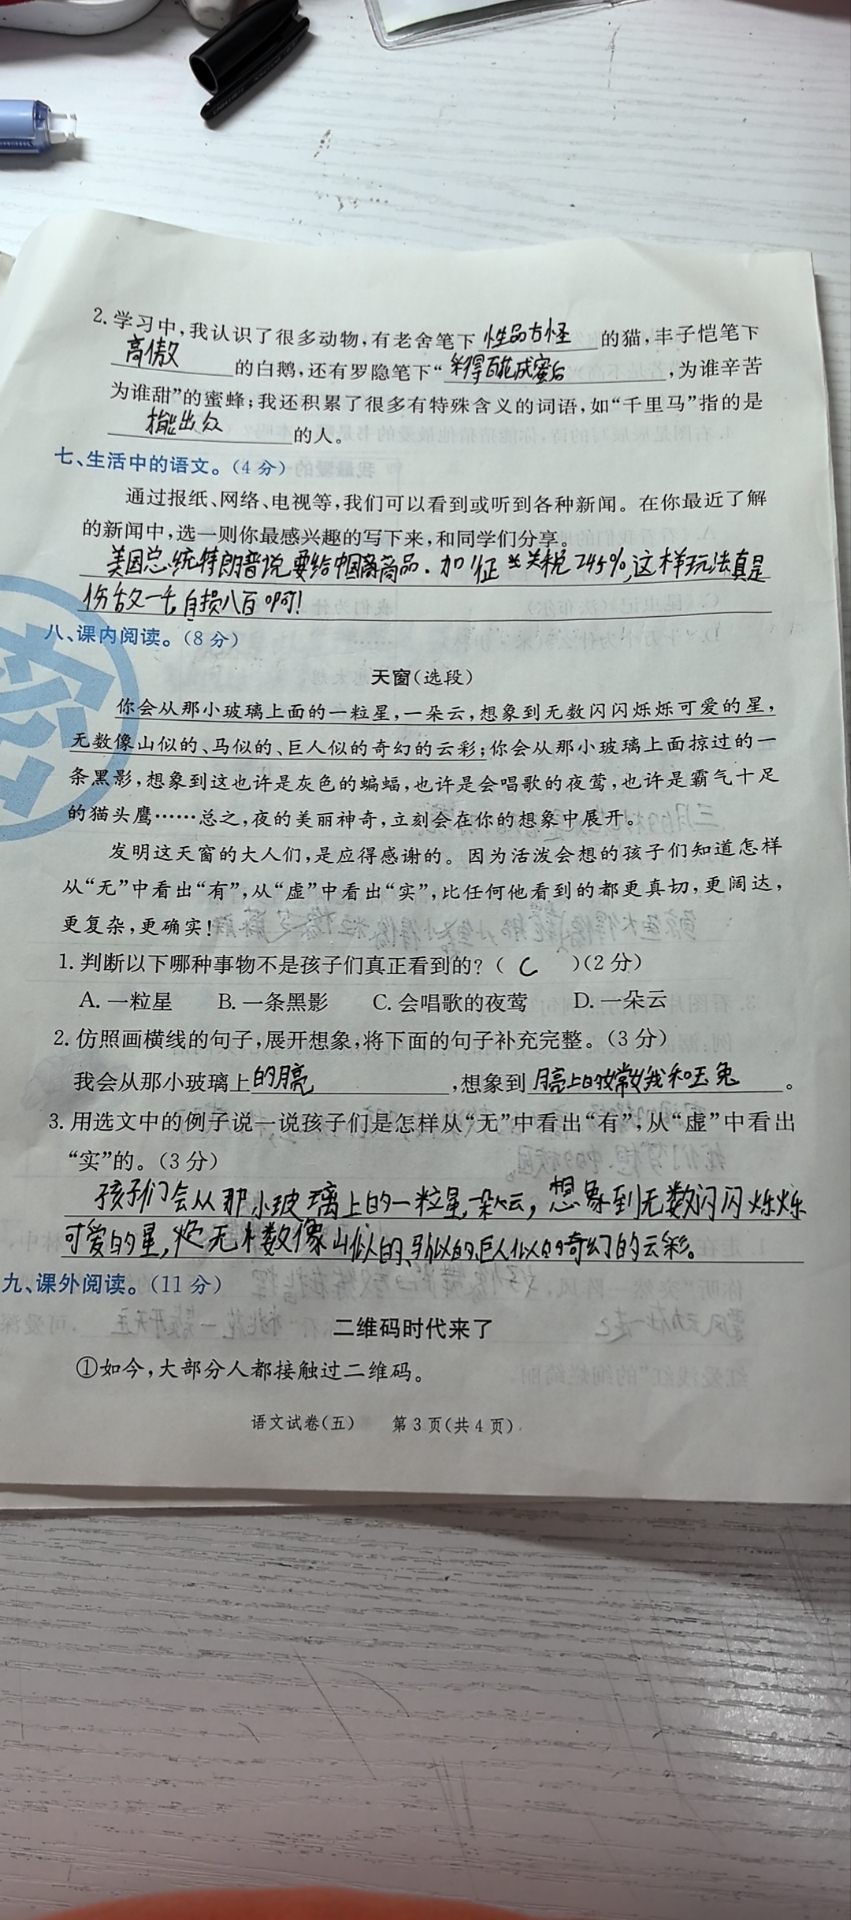 2.学习中,我认识了很多动物,有老舍笔下 性品古怪 的猫,丰子恺笔下
高傲 的白鹅,还有罗隐笔下“ 采得百花成蜜后 ,为谁辛苦
为谁甜”的蜜蜂;我还积累了很多有特殊含义的词语,如“千里马”指的是
出众 的人。
七、生活中的语文。(4分)
通过报纸、网络、电视等,我们可以看到或听到各种新闻。在你最近了解
的新闻中,选一则你最感兴趣的写下来,和同学们分享。
美国总统特朗普说要给中国商品.加征关税245%,这样玩法真是
伤敌一千,自损八百啊!
八、课内阅读。(8分)
天窗(选段)
你会从那小玻璃上面的一粒星,一朵云,想象到无数闪闪烁烁可爱的星,
无数像山似的、马似的、巨人似的奇幻的云彩;你会从那小玻璃上面掠过的一
条黑影,想象到这也许是灰色的蝙蝠,也许是会唱歌的夜莺,也许是霸气十足
的猫头鹰……总之,夜的美丽神奇,立刻会在你的想象中展开。
发明这天窗的大人们,是应得感谢的。因为活泼会想的孩子们知道怎样
从“无”中看出“有”,从“虚”中看出“实”,比任何他看到的都更真切,更阔达,
更复杂,更确实!
1.判断以下哪种事物不是孩子们真正看到的?( C )(2分)
A.一粒星 B.一条黑影 C.会唱歌的夜莺 D.一朵云
2.仿照画横线的句子,展开想象,将下面的句子补充完整。(3分)
我会从那小玻璃上 的月亮 ,想象到 月亮上的嫦娥和玉兔 。
3.用选文中的例子说一说孩子们是怎样从“无”中看出“有”,从“虚”中看出
“实”的。(3分)
孩子们会从那小玻璃上的一粒星,一朵云,想象到无数闪闪烁烁
可爱的星,无数像山似的、马似的、巨人似的奇幻的云彩。
九、课外阅读。(11分)
二维码时代来了
①如今,大部分人都接触过二维码。
语文试卷(五) 第3页(共4页)